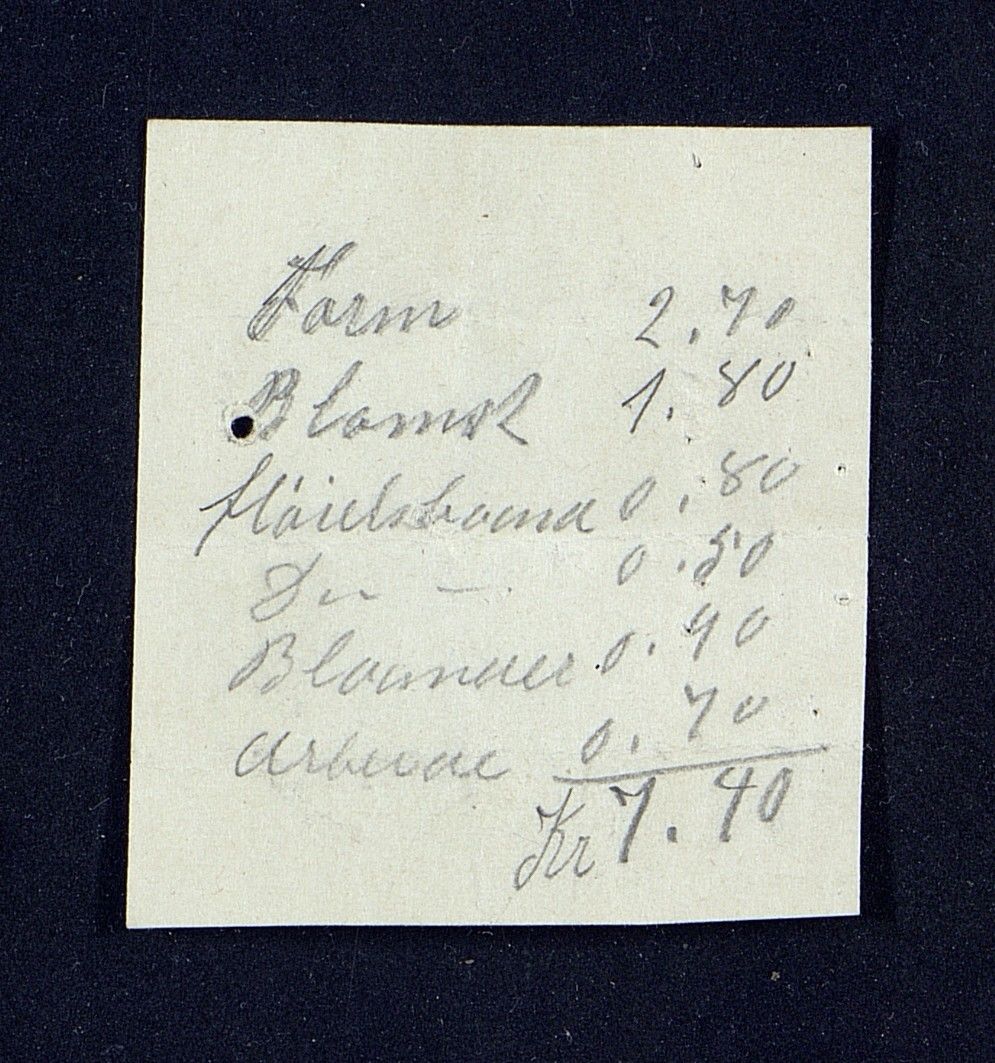 Form 2.70
Blomst 1.80
flöielsbaand 0.80
Do — 0.50
Blaander 0.90
Arbeide 0.70
Kr 7.40